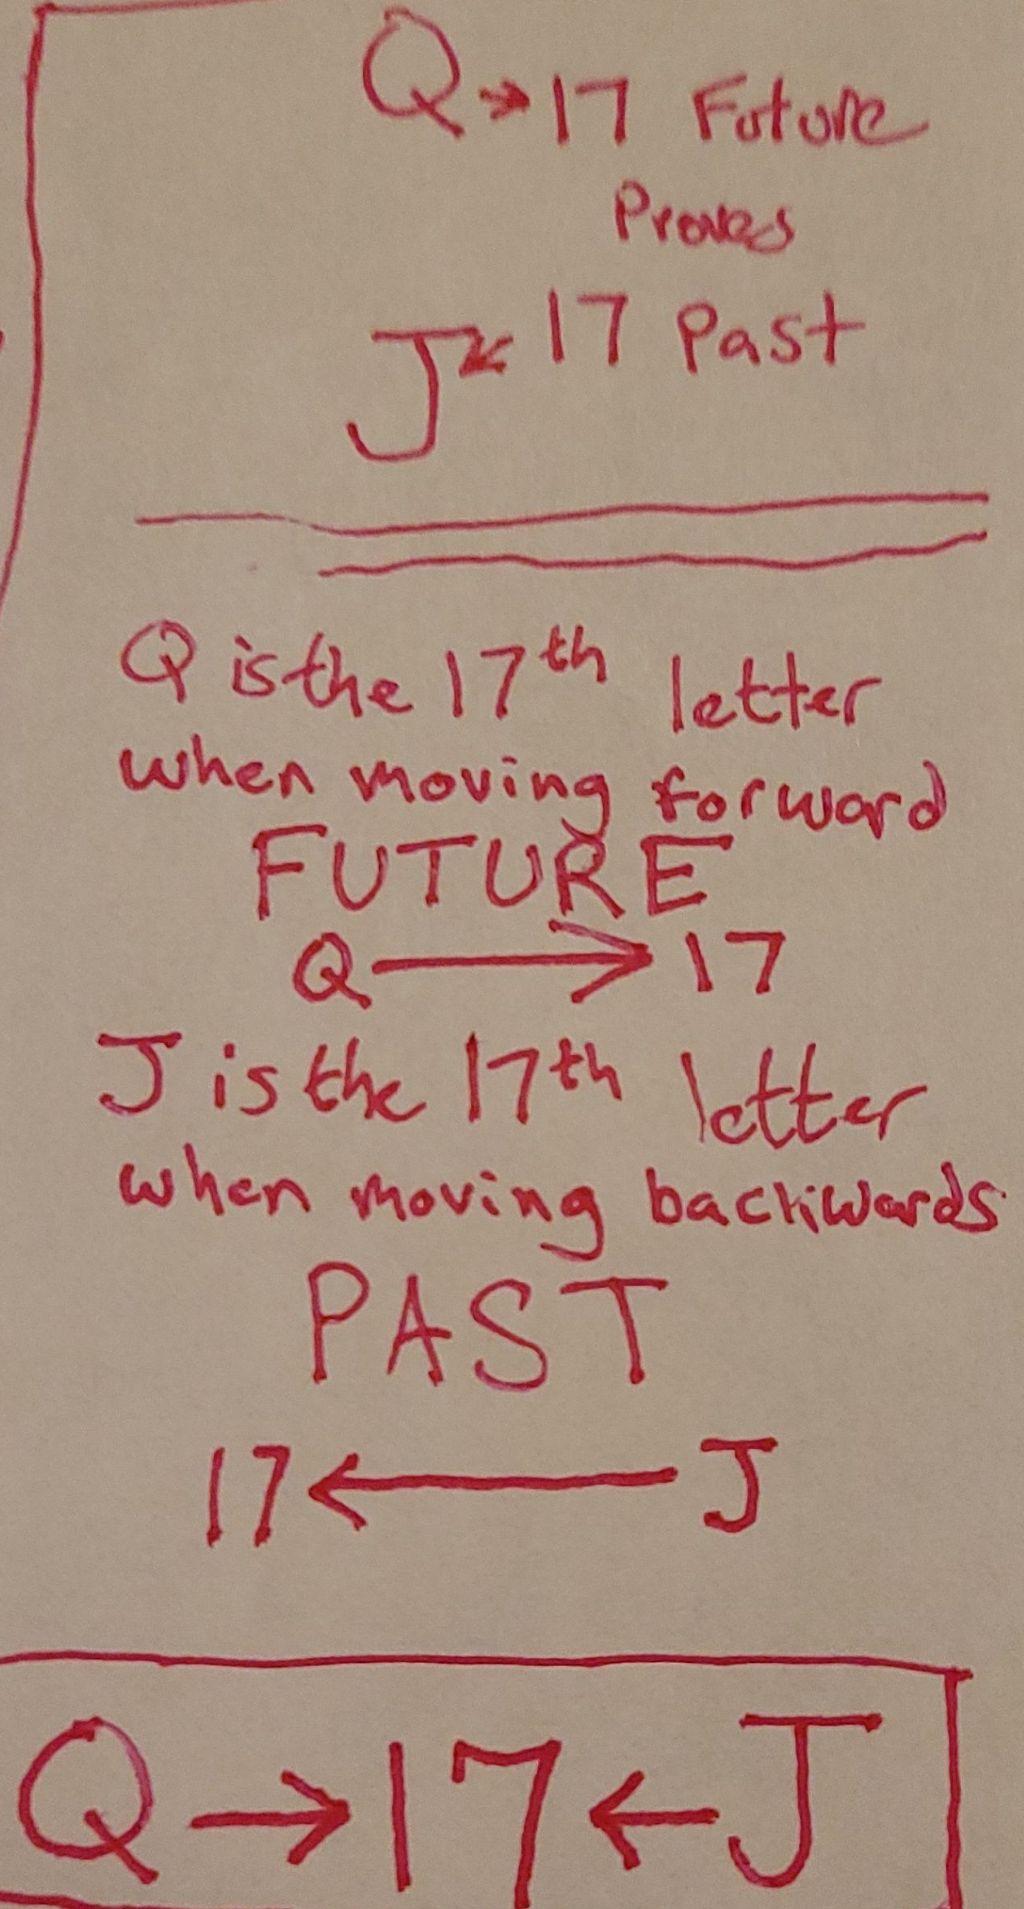 Q → 17 Future
Proves
J ← 17 Past
Q is the 17th letter
when moving forward
FUTURE
Q → 17
J is the 17th letter
when moving backwards
PAST
17 ← J
Q → 17 ← J